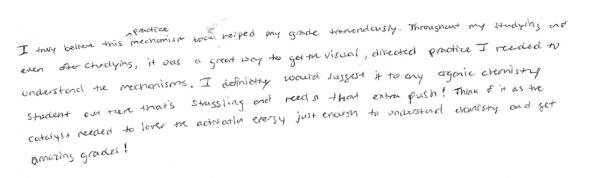 I truly believe this practice mechanism book helped my grade tremendously. Throughout my studying and
even after studying, it was a great way to get the visual, directed practice I needed to
understand the mechanisms. I definitely would suggest it to any organic chemistry
student out there that's struggling and needs that extra push! Think of it as the
catalyst needed to lower the activation energy just enough to understand chemistry and get
amazing grades!